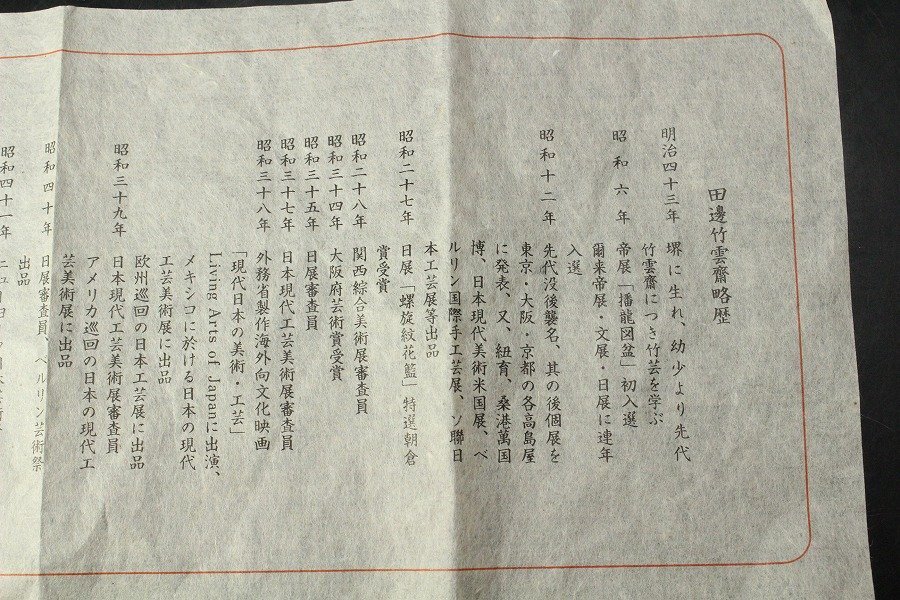 田邊竹雲齋略歴
明治四十三年 堺に生れ、幼少より先代
竹雲齋につき竹芸を学ぶ
昭和六年 帝展「播龍図盆」初入選
爾来帝展・文展・日展に連年
入選
昭和十二年 先代没後襲名、其の後個展を
東京・大阪・京都の各高島屋
に発表、又、紐育、桑港萬国
博、日本現代美術米国展、ベ
ルリン国際手工芸展、ソ聯日
本工芸展等出品
昭和二十七年 日展「螺旋紋花籃」特選朝倉
賞受賞
昭和二十八年 関西綜合美術展審査員
昭和三十四年 大阪府芸術賞受賞
昭和三十五年 日展審査員
昭和三十七年 日本現代工芸美術展審査員
昭和三十八年 外務省製作海外向文化映画
「現代日本の美術・工芸」
Living Arts of Japanに出演、
メキシコに於ける日本の現代
工芸美術展に出品
欧州巡回の日本工芸展に出品
昭和三十九年 日本現代工芸美術展審査員
アメリカ巡回の日本の現代工
芸美術展に出品
昭和四十年 日展審査員、ベルリン芸術祭
出品
昭和四十一年